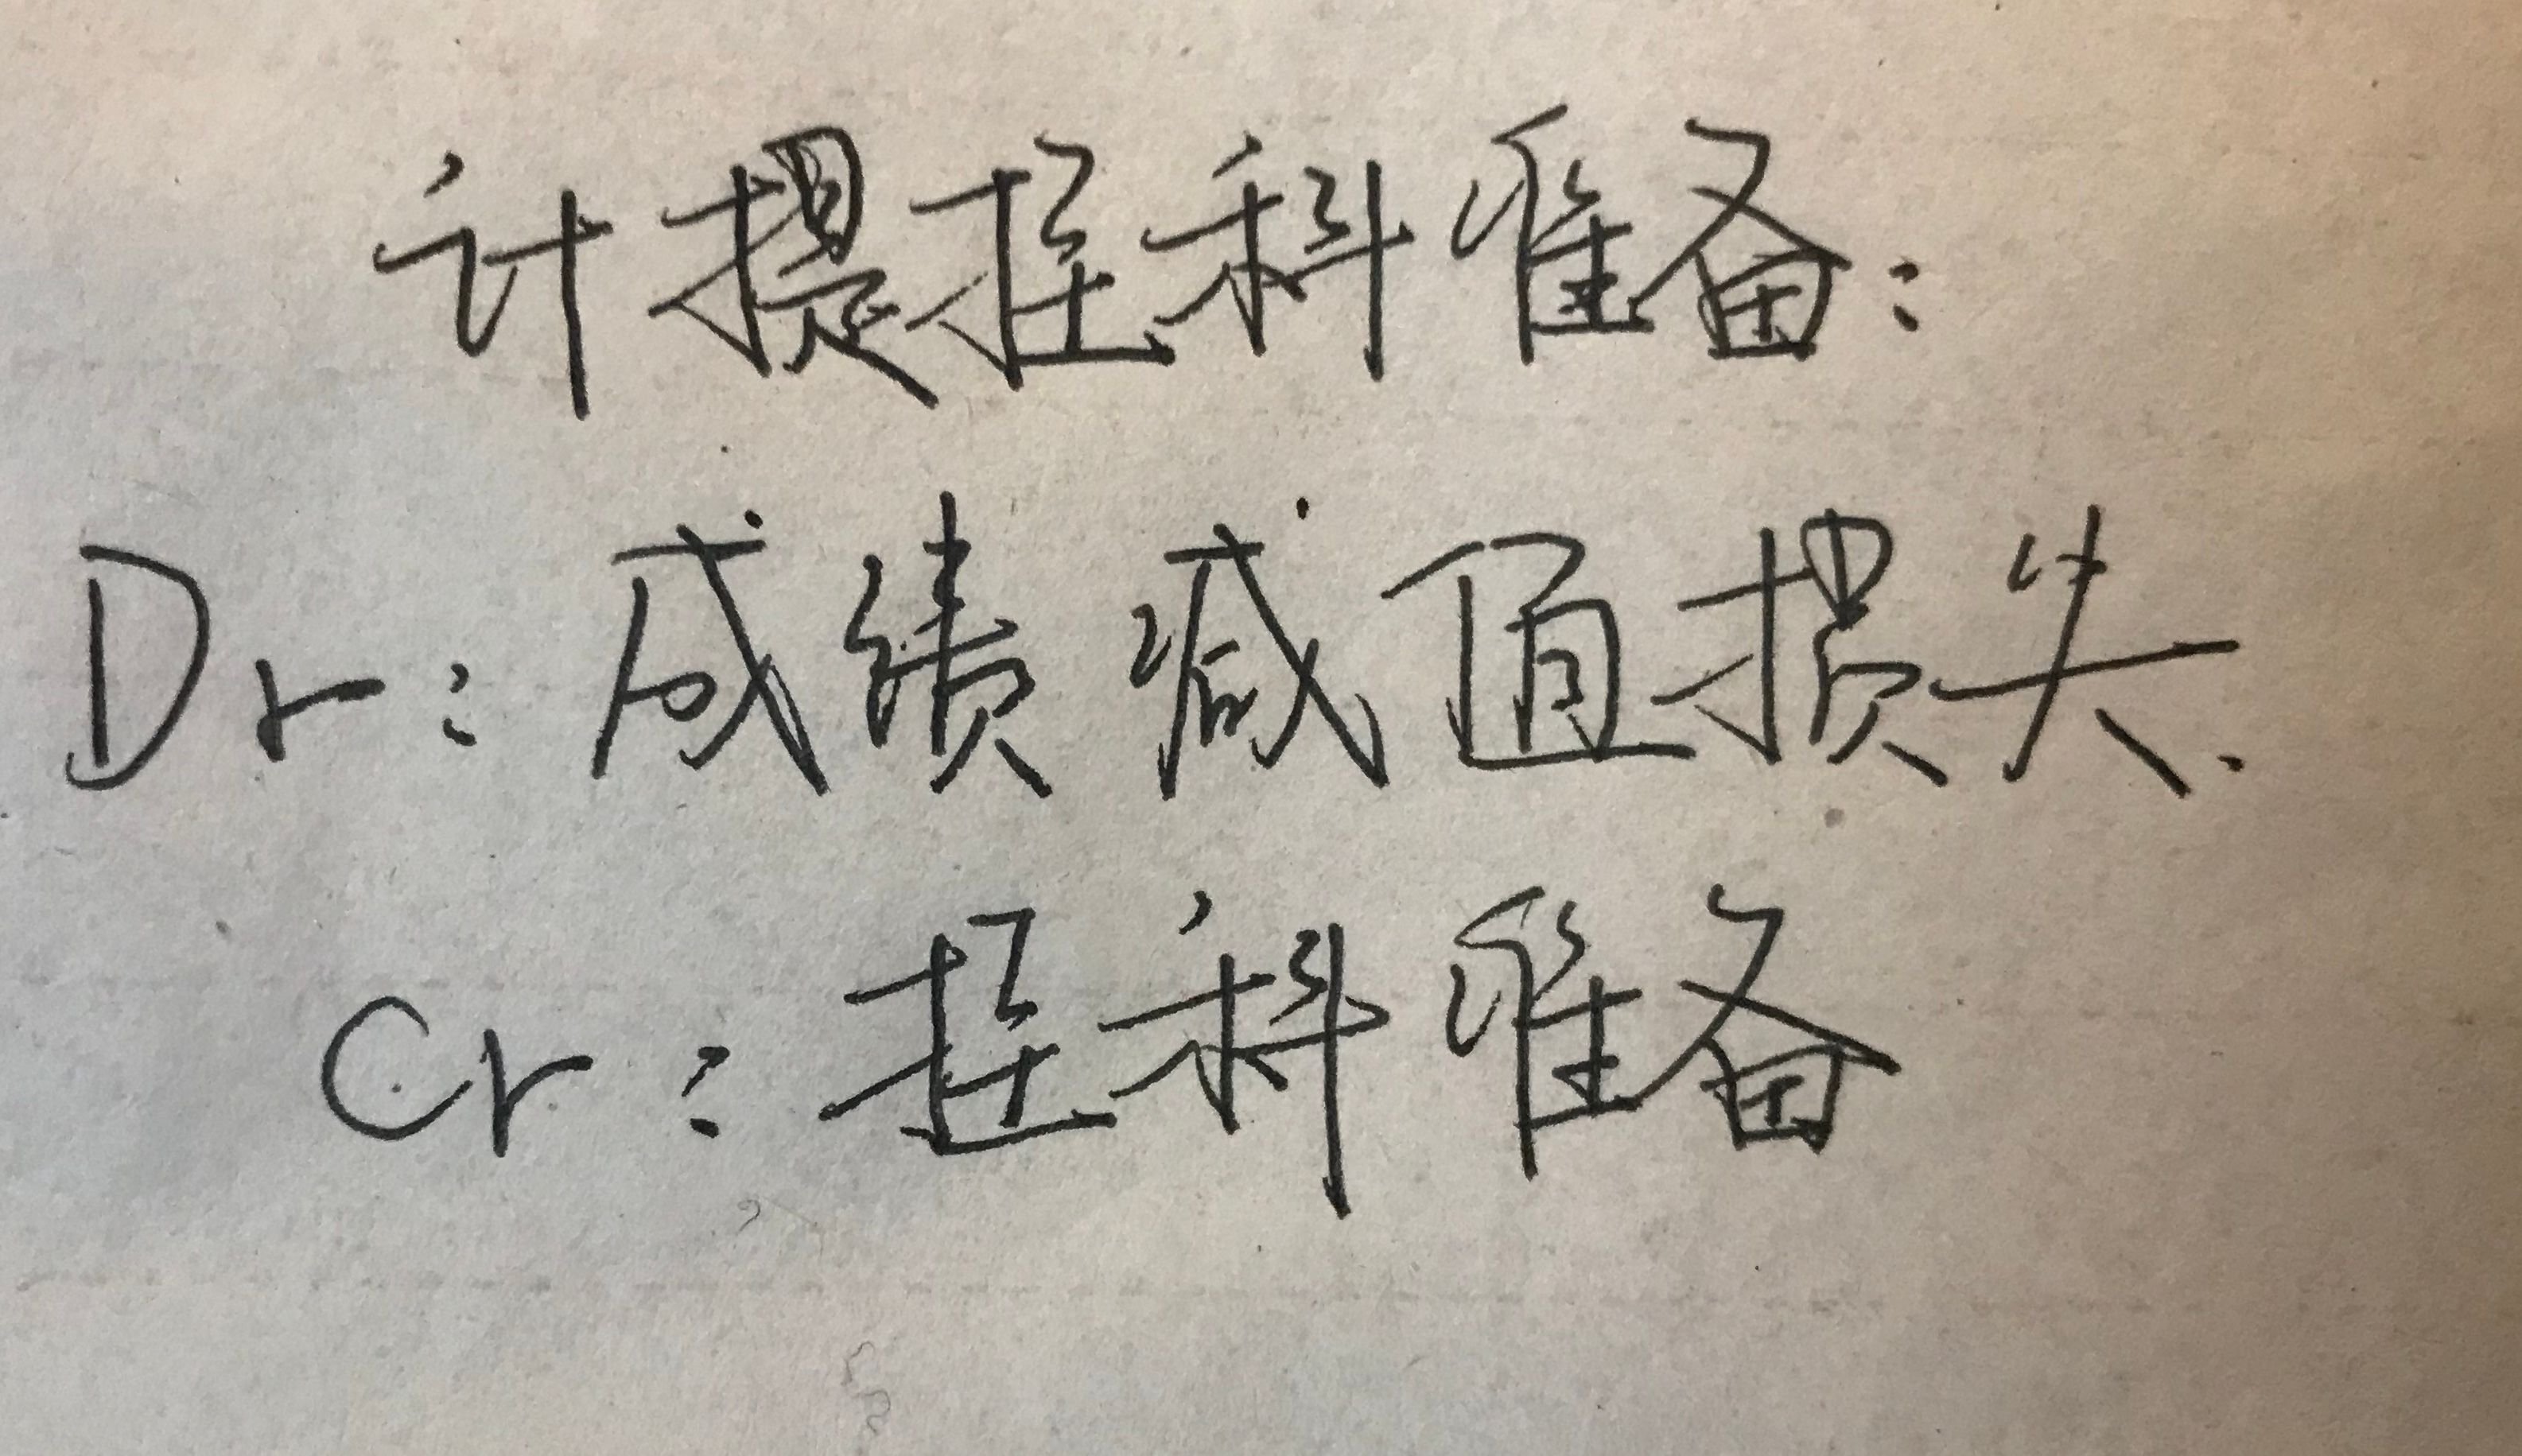 计提挂科准备:
Dr:成绩减值损失.
Cr:挂科准备